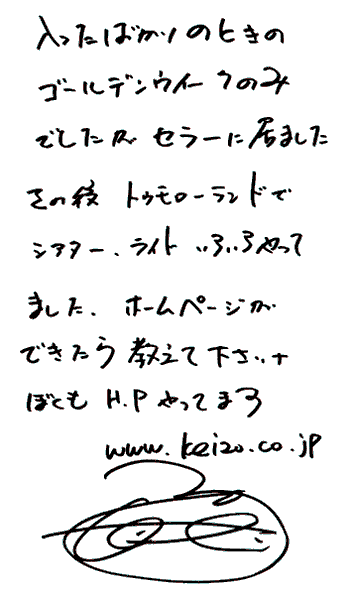 入ったばかりのときの
ゴールデンウイークのみ
でしたが セラーに居ました
その後 トゥモローランドで
シアター、ライト いろいろやって
ました. ホームページが
できたら教えて下さい+
ぼくも H.P やってます
www.keizo.co.jp